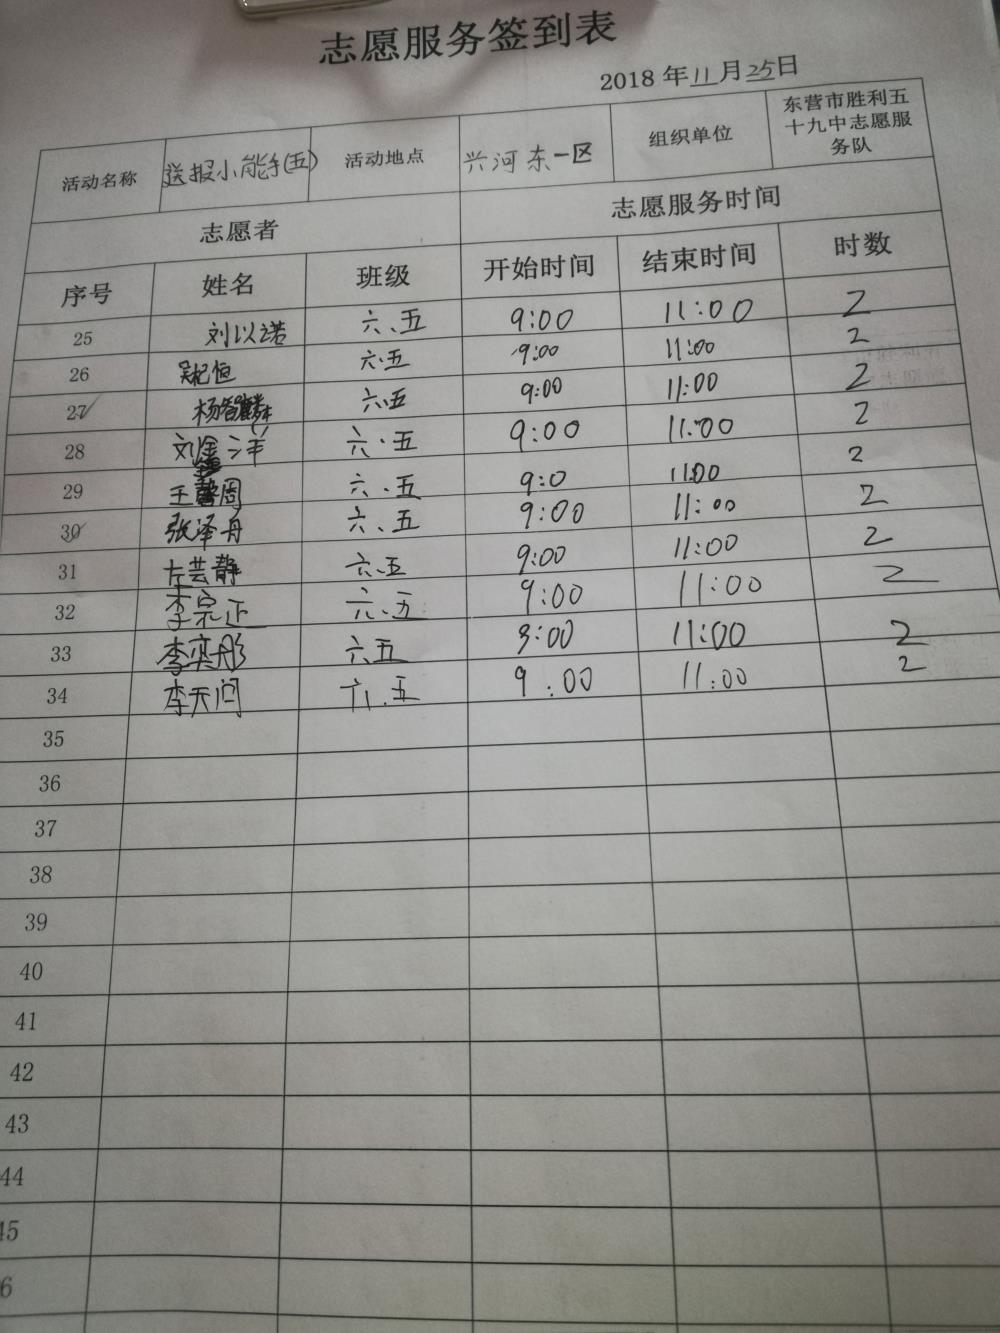 志愿服务签到表
2018 年 11 月 25 日
活动名称 送报小能手(五) 活动地点 兴河东一区 组织单位 东营市胜利五
十九中志愿服
务队
志愿者 志愿服务时间
序号 姓名 班级 开始时间 结束时间 时数
25 刘以诺 六.五 9:00 11:00 2
26 吴杞恒 六.五 9:00 11:00 2
27 杨智麟 六.五 9:00 11:00 2
28 刘金洋 六.五 9:00 11:00 2
29 王馨周 六.五 9:0 11:00 2
30 张泽舟 六.五 9:00 11:00 2
31 左芸静 六.五 9:00 11:00 2
32 李宗正 六.五 9:00 11:00 2
33 李奕彤 六五 9:00 11:00 2
34 李天问 六.五 9:00 11:00 2
35
36
37
38
39
40
41
42
43
44
45
6